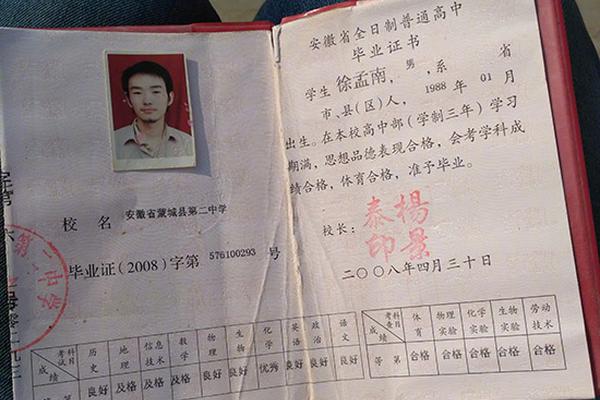 校 名 安徽省蒙城县第二中学
毕业证(2008)字第 576100293 号
考试科目 成绩 历史 地理 信息技术 数学 物理 生物 化学 英语 政治 语文
等 第 良好 及格 及格 及格 良好 良好 优秀 良好 良好 良好
第二中学
安徽省全日制普通高中
毕业证书
学生 徐孟南, 男, 系 省
市、县(区)人, 1988 年 01 月
出生。在本校高中部(学制三年)学习
期满, 思想品德表现合格, 会考学科成
绩合格, 体育合格, 准予毕业。
校长: 杨景泰印
二〇〇八年四月三十日
考查科目 成绩 体育 物理实验 化学实验 生物实验 劳动技术
等 第 合格 合格 合格 合格 合格